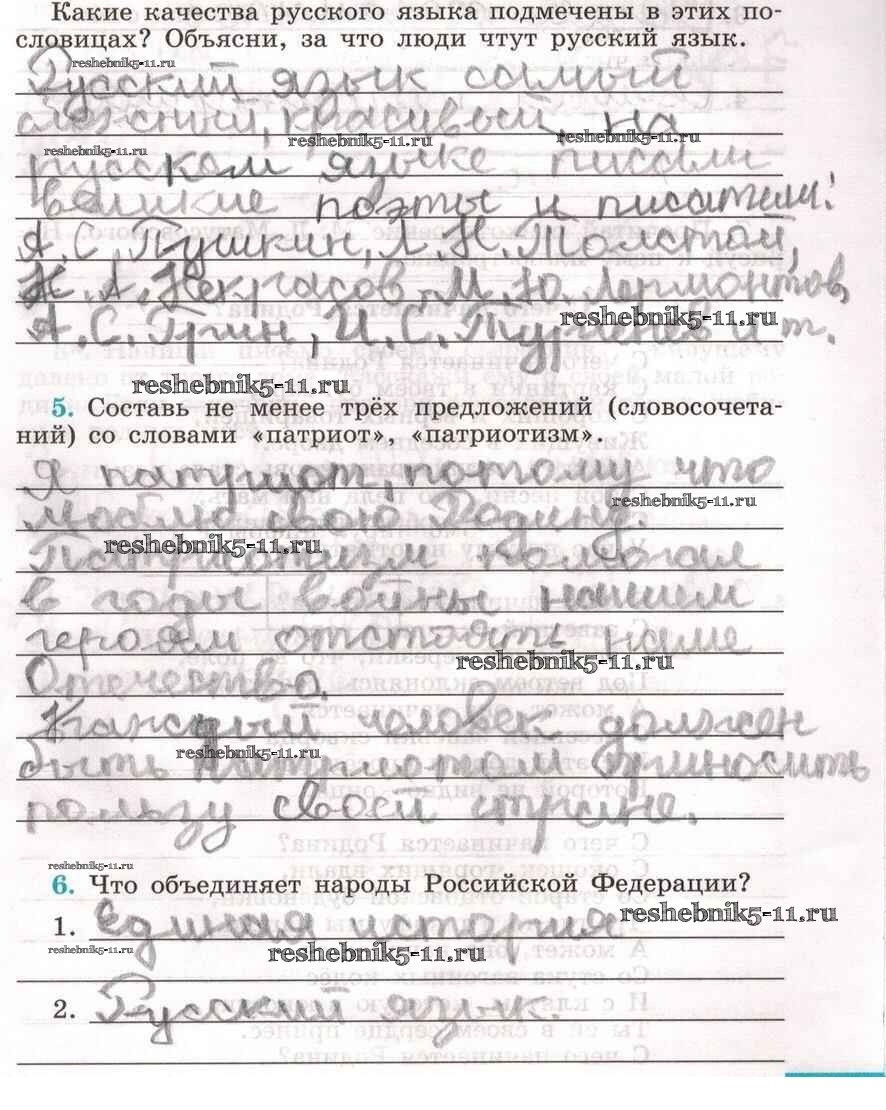 Какие качества русского языка подмечены в этих по-
словицах? Объясни, за что люди чтут русский язык.
reshebnik5-11.ru
Русский язык самый
сложный, красивый, на
reshebnik5-11.ru
reshebnik5-11.ru
reshebnik5-11.ru
русском языке писали
великие поэты и писатели:
А.С.Пушкин, Л.Н.Толстой,
Н.А.Некрасов, М.Ю.Лермонтов,
reshebnik5-11.ru
А.С.Грин, И.С.Тургенев и т.
reshebnik5-11.ru
5. Составь не менее трёх предложений (словосочета-
ний) со словами «патриот», «патриотизм».
Я патриот, потому что
reshebnik5-11.ru
люблю свою Родину.
reshebnik5-11.ru
Патриотизм помогал
в годы войны нашим
героям отстоять наше
reshebnik5-11.ru
Отечество.
Каждый человек должен
reshebnik5-11.ru
быть патриотом приносить
пользу своей стране.
reshebnik5-11.ru
6. Что объединяет народы Российской Федерации?
1. Единая история
reshebnik5-11.ru
reshebnik5-11.ru
reshebnik5-11.ru
2. Русский язык.